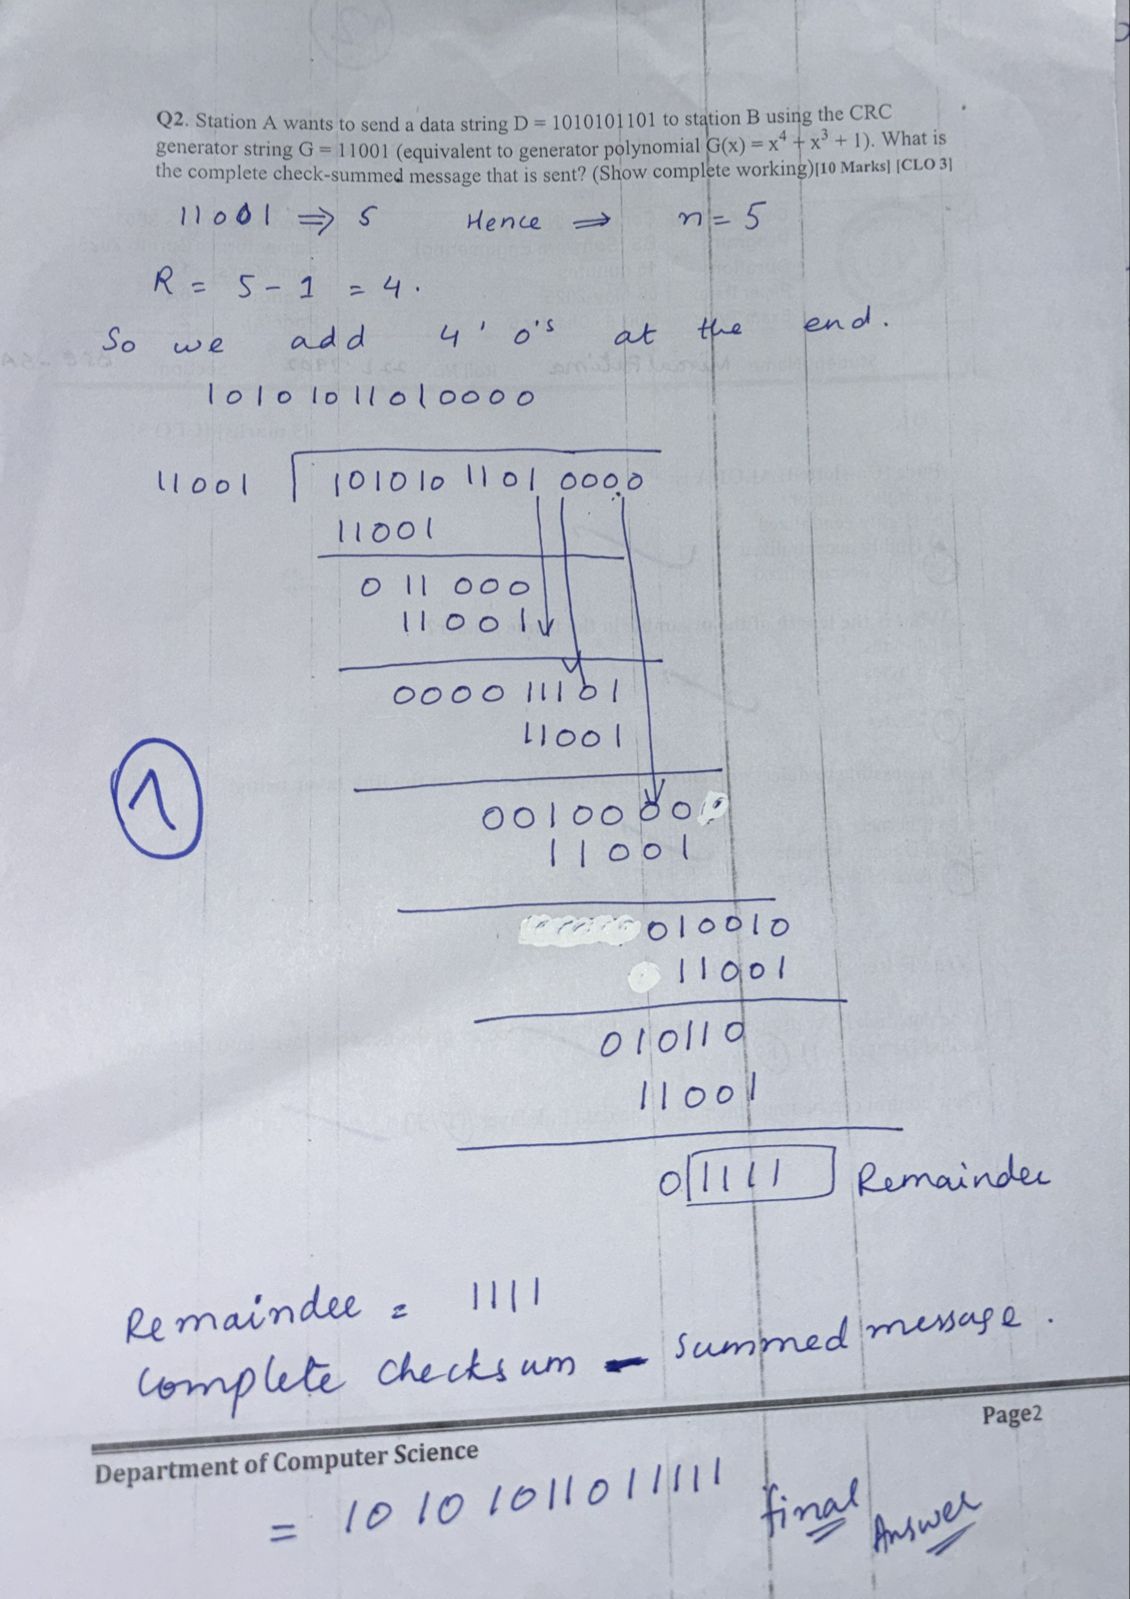 Q2. Station A wants to send a data string D = 1010101101 to station B using the CRC
generator string G = 11001 (equivalent to generator polynomial G(x) = x⁴ + x³ + 1). What is
the complete check-summed message that is sent? (Show complete working)[10 Marks] [CLO 3]
11001 ⇒ 5 Hence ⇒ n = 5
R = 5 - 1 = 4.
So we add 4' 0's at the end.
10101011010000
11001 1010101101 0000
11001
0 11 000
11001
0000 11101
11001
0010000
11001
010010
11001
010110
11001
0 1111 Remainder
1
Remainder = 1111
Complete checksum - summed message.
Page2
Department of Computer Science
= 10101011011111 final Answer